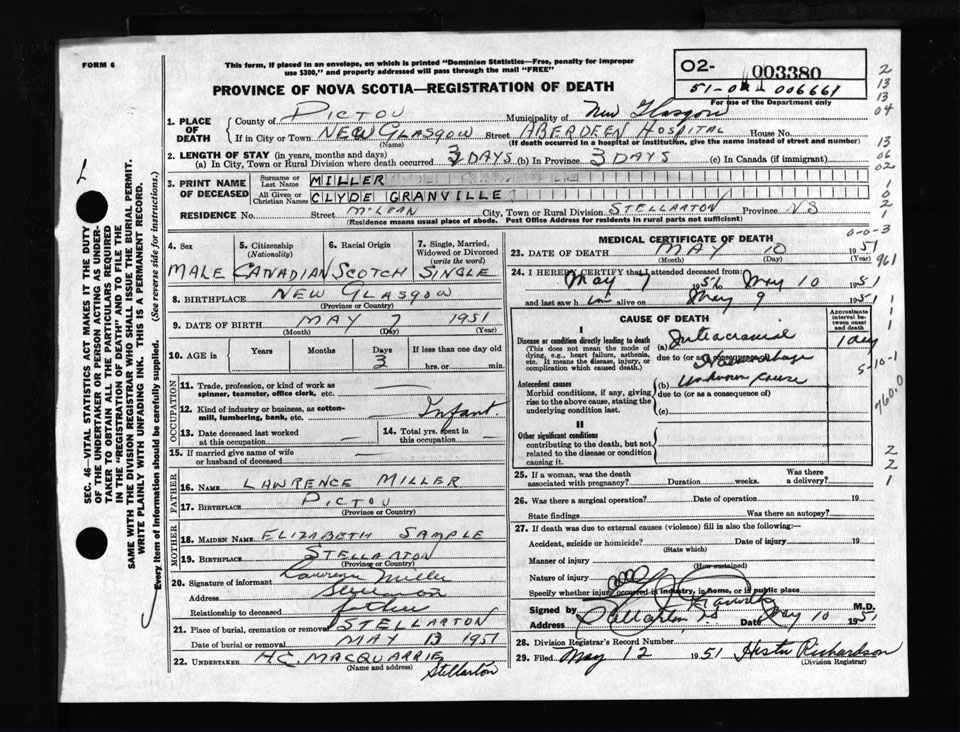 FORM 6
This form, if placed in an envelope, on which is printed "Dominion Statistics—Free, penalty for improper
use $300," and properly addressed will pass through the mail "FREE"
PROVINCE OF NOVA SCOTIA—REGISTRATION OF DEATH
02- 003380
51-0 006661
For use of the Department only
1. PLACE OF DEATH
County of PICTOU Municipality of New Glasgow
If in City or Town NEW GLASGOW Street ABERDEEN HOSPITAL House No.
(Name) (If death occurred in a hospital or institution, give the name instead of street and number)
2. LENGTH OF STAY (in years, months and days)
(a) In City, Town or Rural Division where death occurred 3 DAYS (b) In Province 3 DAYS (c) In Canada (if immigrant)
3. PRINT NAME OF DECEASED
Surname or Last Name MILLER
All Given or Christian Names CLYDE GRANVILLE
RESIDENCE No. Street McLEAN City, Town or Rural Division STELLARTON Province NS
(Residence means usual place of abode. Post Office Address for residents in rural parts not sufficient)
4. Sex 5. Citizenship (Nationality) 6. Racial Origin 7. Single, Married, Widowed or Divorced (write the word)
MALE CANADIAN SCOTCH SINGLE
8. BIRTHPLACE NEW GLASGOW
(Province or Country)
9. DATE OF BIRTH MAY 7 1951
(Month) (Day) (Year)
10. AGE in Years Months Days If less than one day old
3 hrs. or min.
OCCUPATION
11. Trade, profession, or kind of work as
spinner, teamster, office clerk, etc. —
12. Kind of industry or business, as cotton-
mill, lumbering, bank, etc. Infant
13. Date deceased last worked at this occupation — 14. Total yrs. spent in this occupation —
15. If married give name of wife
or husband of deceased —
FATHER
16. NAME LAWRENCE MILLER
17. BIRTHPLACE PICTOU
(Province or Country)
MOTHER
18. MAIDEN NAME ELIZABETH SAMPLE
19. BIRTHPLACE STELLARTON
(Province or Country)
20. Signature of informant Lawrence Miller
Address Stellarton
Relationship to deceased father
21. Place of burial, cremation or removal STELLARTON
Date of burial or removal MAY 1951
22. UNDERTAKER H.C. MACQUARRIE
(Name and address) Stellarton
MEDICAL CERTIFICATE OF DEATH
23. DATE OF DEATH MAY 10 1951
(Month) (Day) (Year)
24. I HEREBY CERTIFY that I attended deceased from:
May 7 1951 to May 10 1951
and last saw him alive on May 9 1951
CAUSE OF DEATH
Approximate interval between onset and death
I
Disease or condition directly leading to death
(This does not mean the mode of
dying, e.g., heart failure, asthenia,
etc. It means the disease, injury, or
complication which caused death.)
(a) Intracranial 1 day
due to (or as a consequence of) Haemorrhage
Antecedent causes
Morbid conditions, if any, giving
rise to the above cause, stating the
underlying condition last.
(b) Unknown cause
due to (or as a consequence of)
(c)
II
Other significant conditions
contributing to the death, but not
related to the disease or condition
causing it.
25. If a woman, was the death
associated with pregnancy? Duration weeks. Was there a delivery?
26. Was there a surgical operation? Date of operation 19
State findings Was there an autopsy?
27. If death was due to external causes (violence) fill in also the following:—
Accident, suicide or homicide? Date of injury 19
(State which)
Manner of injury
(How sustained)
Nature of injury
Specify whether injury occurred in industry, in home, or in public place
Signed by M.D.
Address Stellarton NS Date May 10 1951
28. Division Registrar's Record Number
29. Filed May 12 1951 Hester Richardson
(Division Registrar)
SEC. 46—VITAL STATISTICS ACT MAKES IT THE DUTY
OF THE UNDERTAKER OR PERSON ACTING AS UNDER-
TAKER TO OBTAIN ALL THE PARTICULARS REQUIRED
IN THE "REGISTRATION OF DEATH" AND TO FILE THE
SAME WITH THE DIVISION REGISTRAR WHO SHALL ISSUE THE BURIAL PERMIT.
WRITE PLAINLY WITH UNFADING INK. THIS IS A PERMANENT RECORD.
Every item of information should be carefully supplied. (See reverse side for instructions.)
2
13
13
04
13
06
02
1
0
2
1
0-0-3
961
1
1
1
5-10-1
760.0
2
2
1